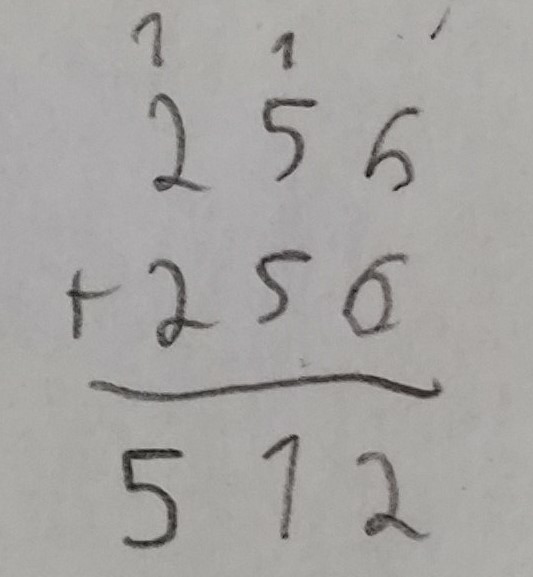 1 1
2 5 6
+ 2 5 6
5 1 2